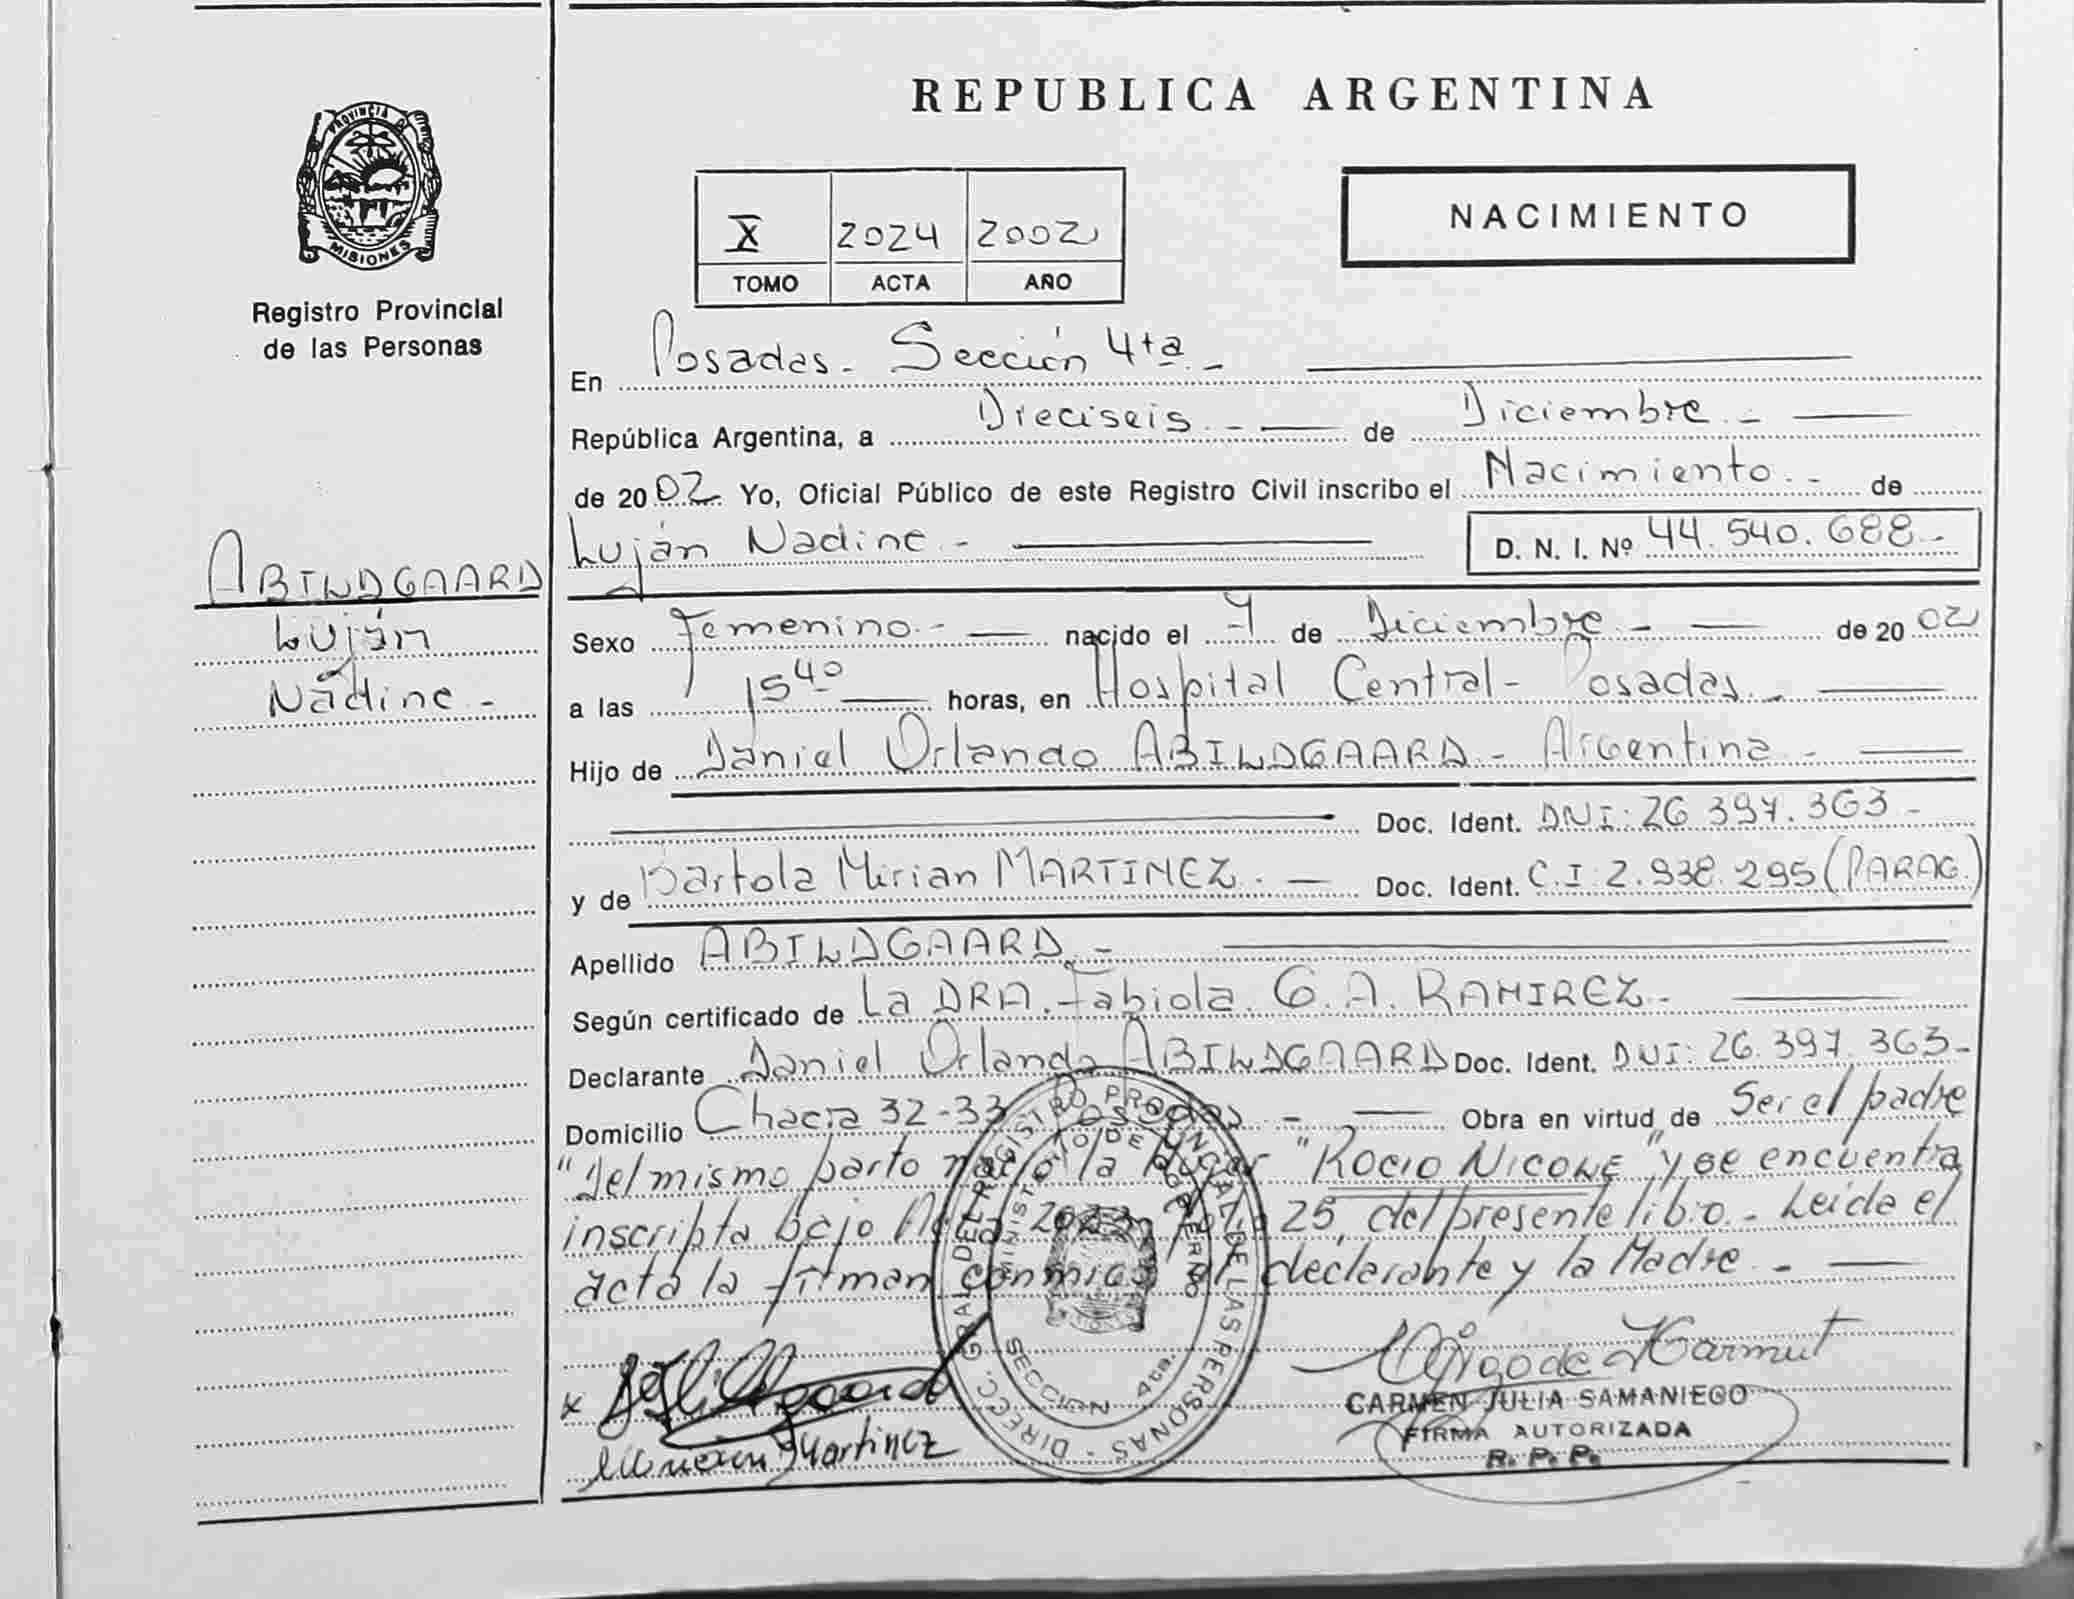 PROVINCIA D
MISIONES
Registro Provincial
de las Personas
ABILDGAARD
Luján
Nadine -
REPUBLICA ARGENTINA
X 2024 2002
TOMO ACTA AÑO
NACIMIENTO
En Posadas - Sección 4ta -
República Argentina, a Dieciseis - de Diciembre -
de 2002 Yo, Oficial Público de este Registro Civil inscribo el Nacimiento - de
Luján Nadine - D. N. I. Nº 44.540.688 -
Sexo Femenino - nacido el 7 de Diciembre - de 2002
a las 15 40 horas, en Hospital Central - Posadas -
Hijo de Daniel Orlando ABILDGAARD - Argentina -
Doc. Ident. DNI: 26.397.363 -
y de Bartola Mirian MARTINEZ - Doc. Ident. C.I: 2.938.295 (PARAG.)
Apellido ABILDGAARD -
Según certificado de La DRA. Fabiola G. A. RAMIREZ -
Declarante Daniel Orlando ABILDGAARD Doc. Ident. DNI: 26.397.363 -
Domicilio Chacra 32-33 Posadas - Obra en virtud de Ser el padre
"Del mismo parto nació la "ROCIO NICOLE" y se encuentra
inscripta bajo Acta 2023, 25, del presente libro - Leída el
acta la firman conmigo el declarante y la Madre -
DIRECC. GRAL DEL REGISTRO PROVINCIAL DE LAS PERSONAS -
MINISTERIO DE GOBIERNO
SECCION 4ta.
x
Martinez
CARMEN JULIA SAMANIEGO
FIRMA AUTORIZADA
R. P. P.